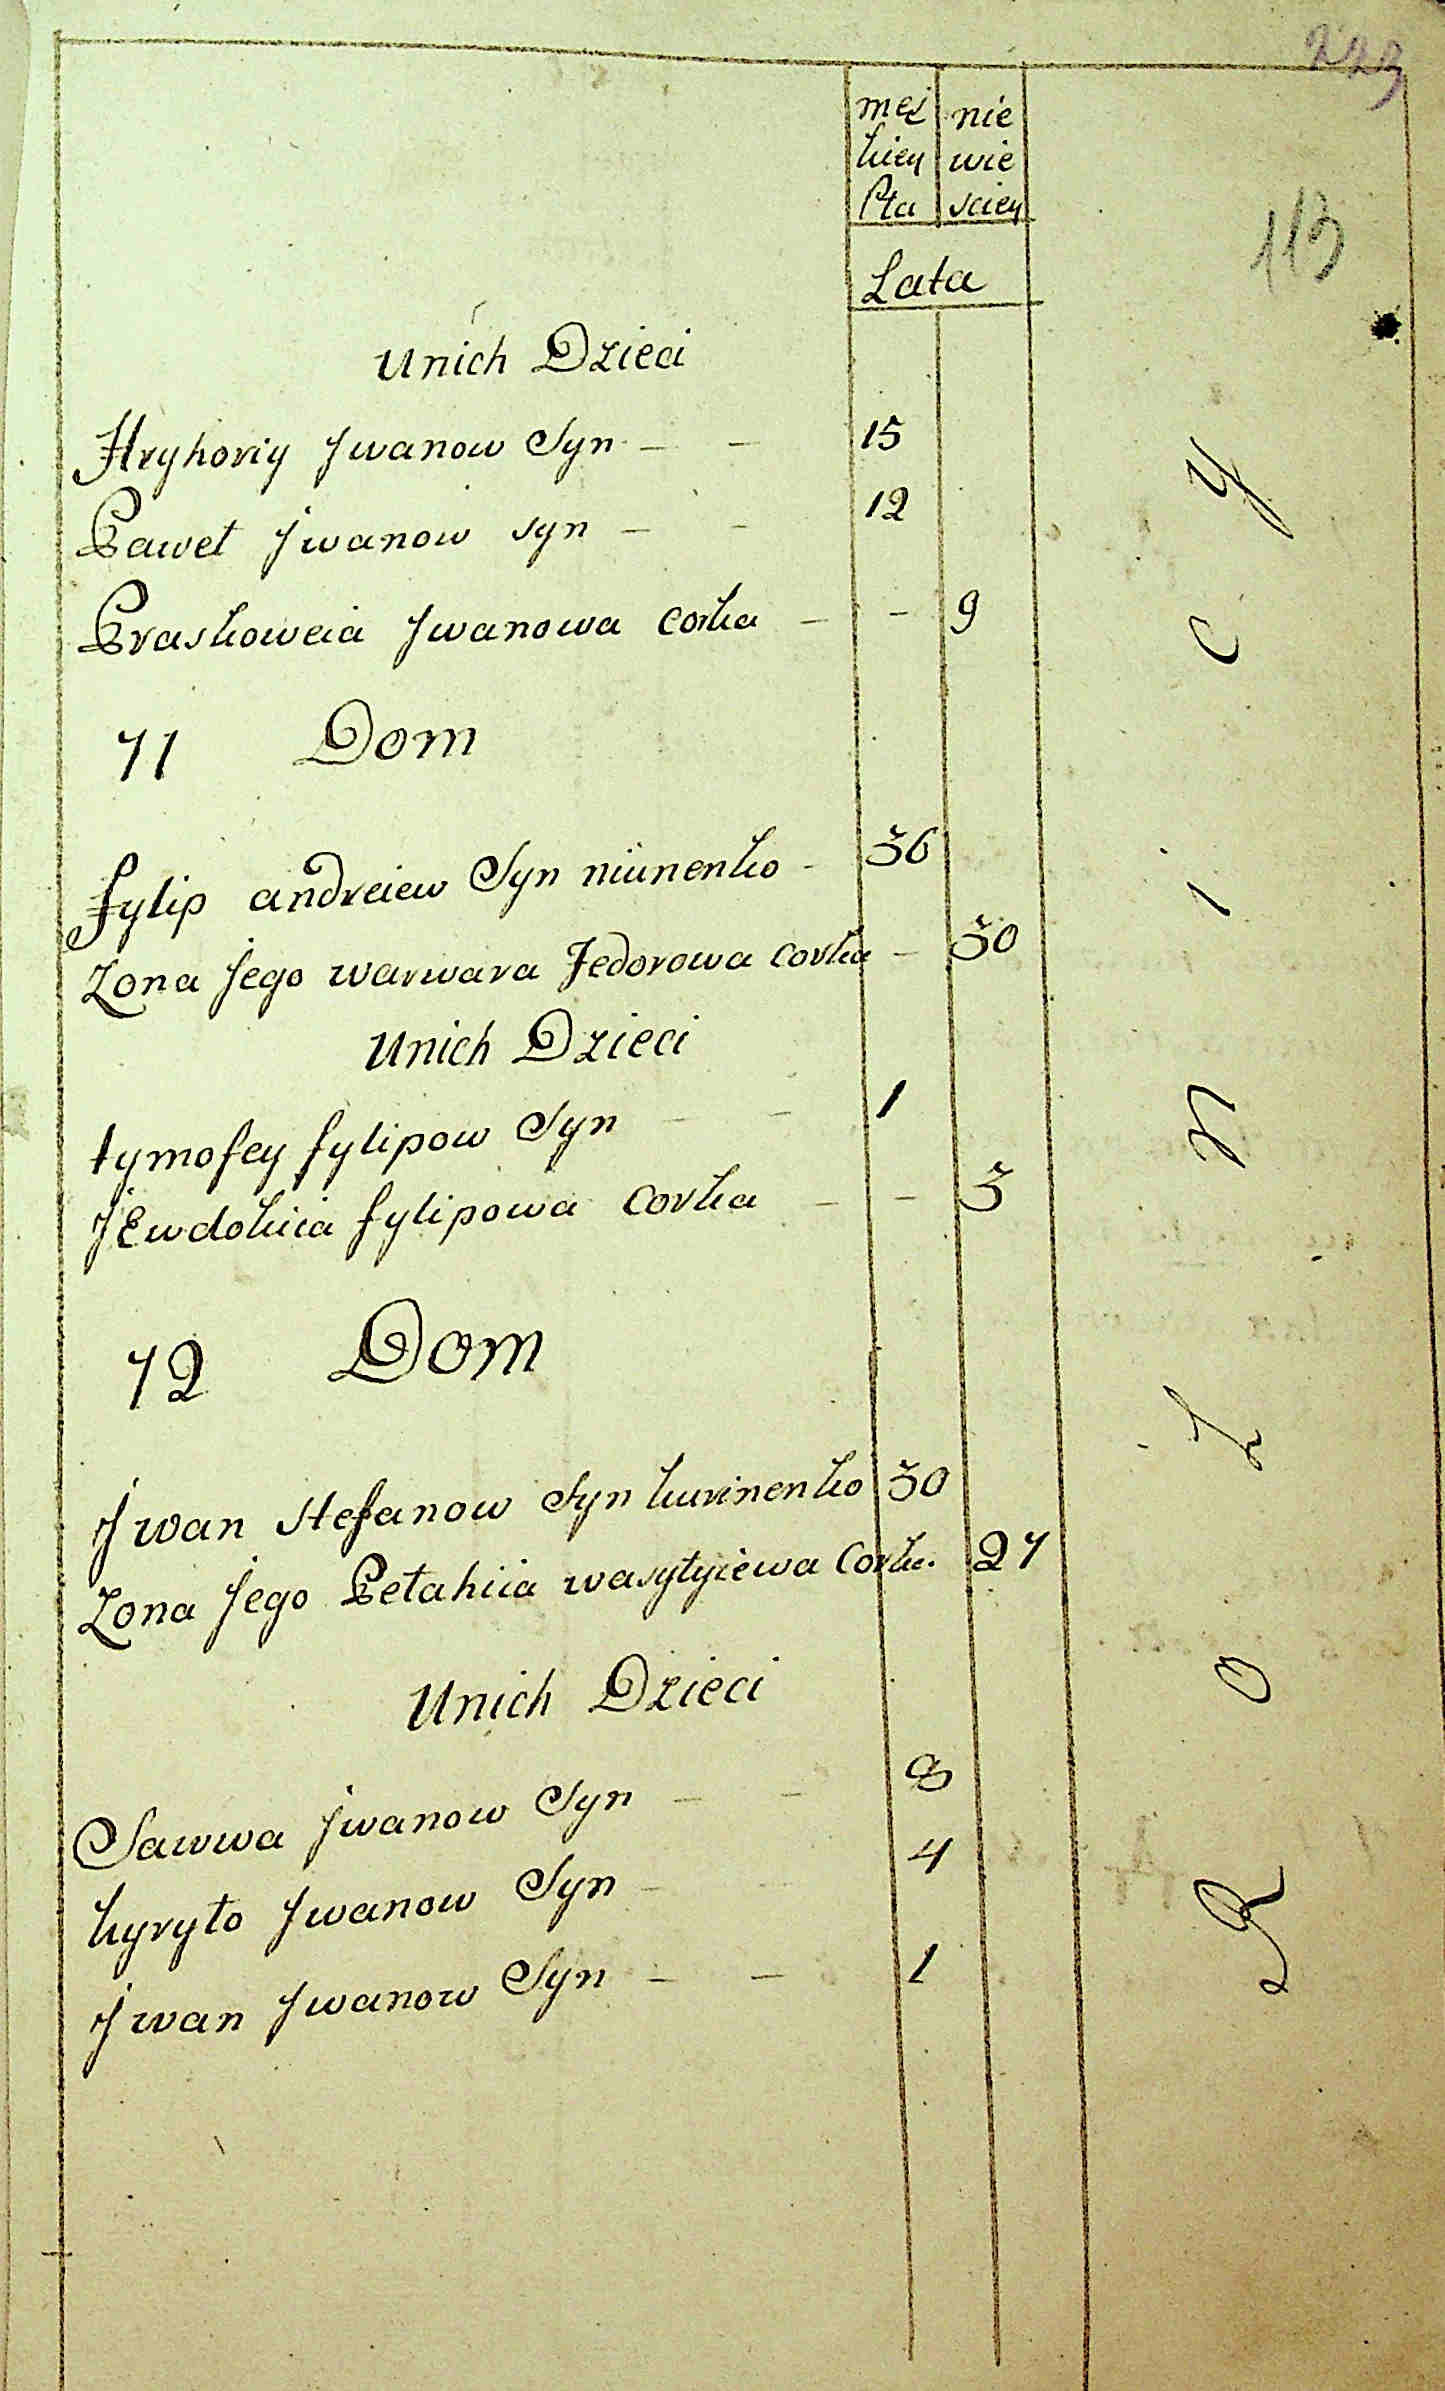 223
męż nie
kiey wie
Płci sciey
113
Lata
Unich Dzieci
Hryhoriy Jwanow Syn - - 15
Paweł Jwanow syn - - 12
Praskoweia Jwanowa corka - - 9
71 Dom
fylip andreiew Syn niunenko - 36
Zona Jego warwara Fedorowa corka - 30
Unich Dzieci
tymofey fylipow Syn - - 1
JEwdokiia fylipowa corka - - 3
72 Dom
Jwan Stefanow Syn kurinenko 30
Zona Jego Pełahiia wasyłyiewa Cork. 27
Unich Dzieci
Sawwa Jwanow Syn - - 8
kyryło Jwanow Syn - - 4
Jwan Jwanow Syn - - 1
R o l n i c y